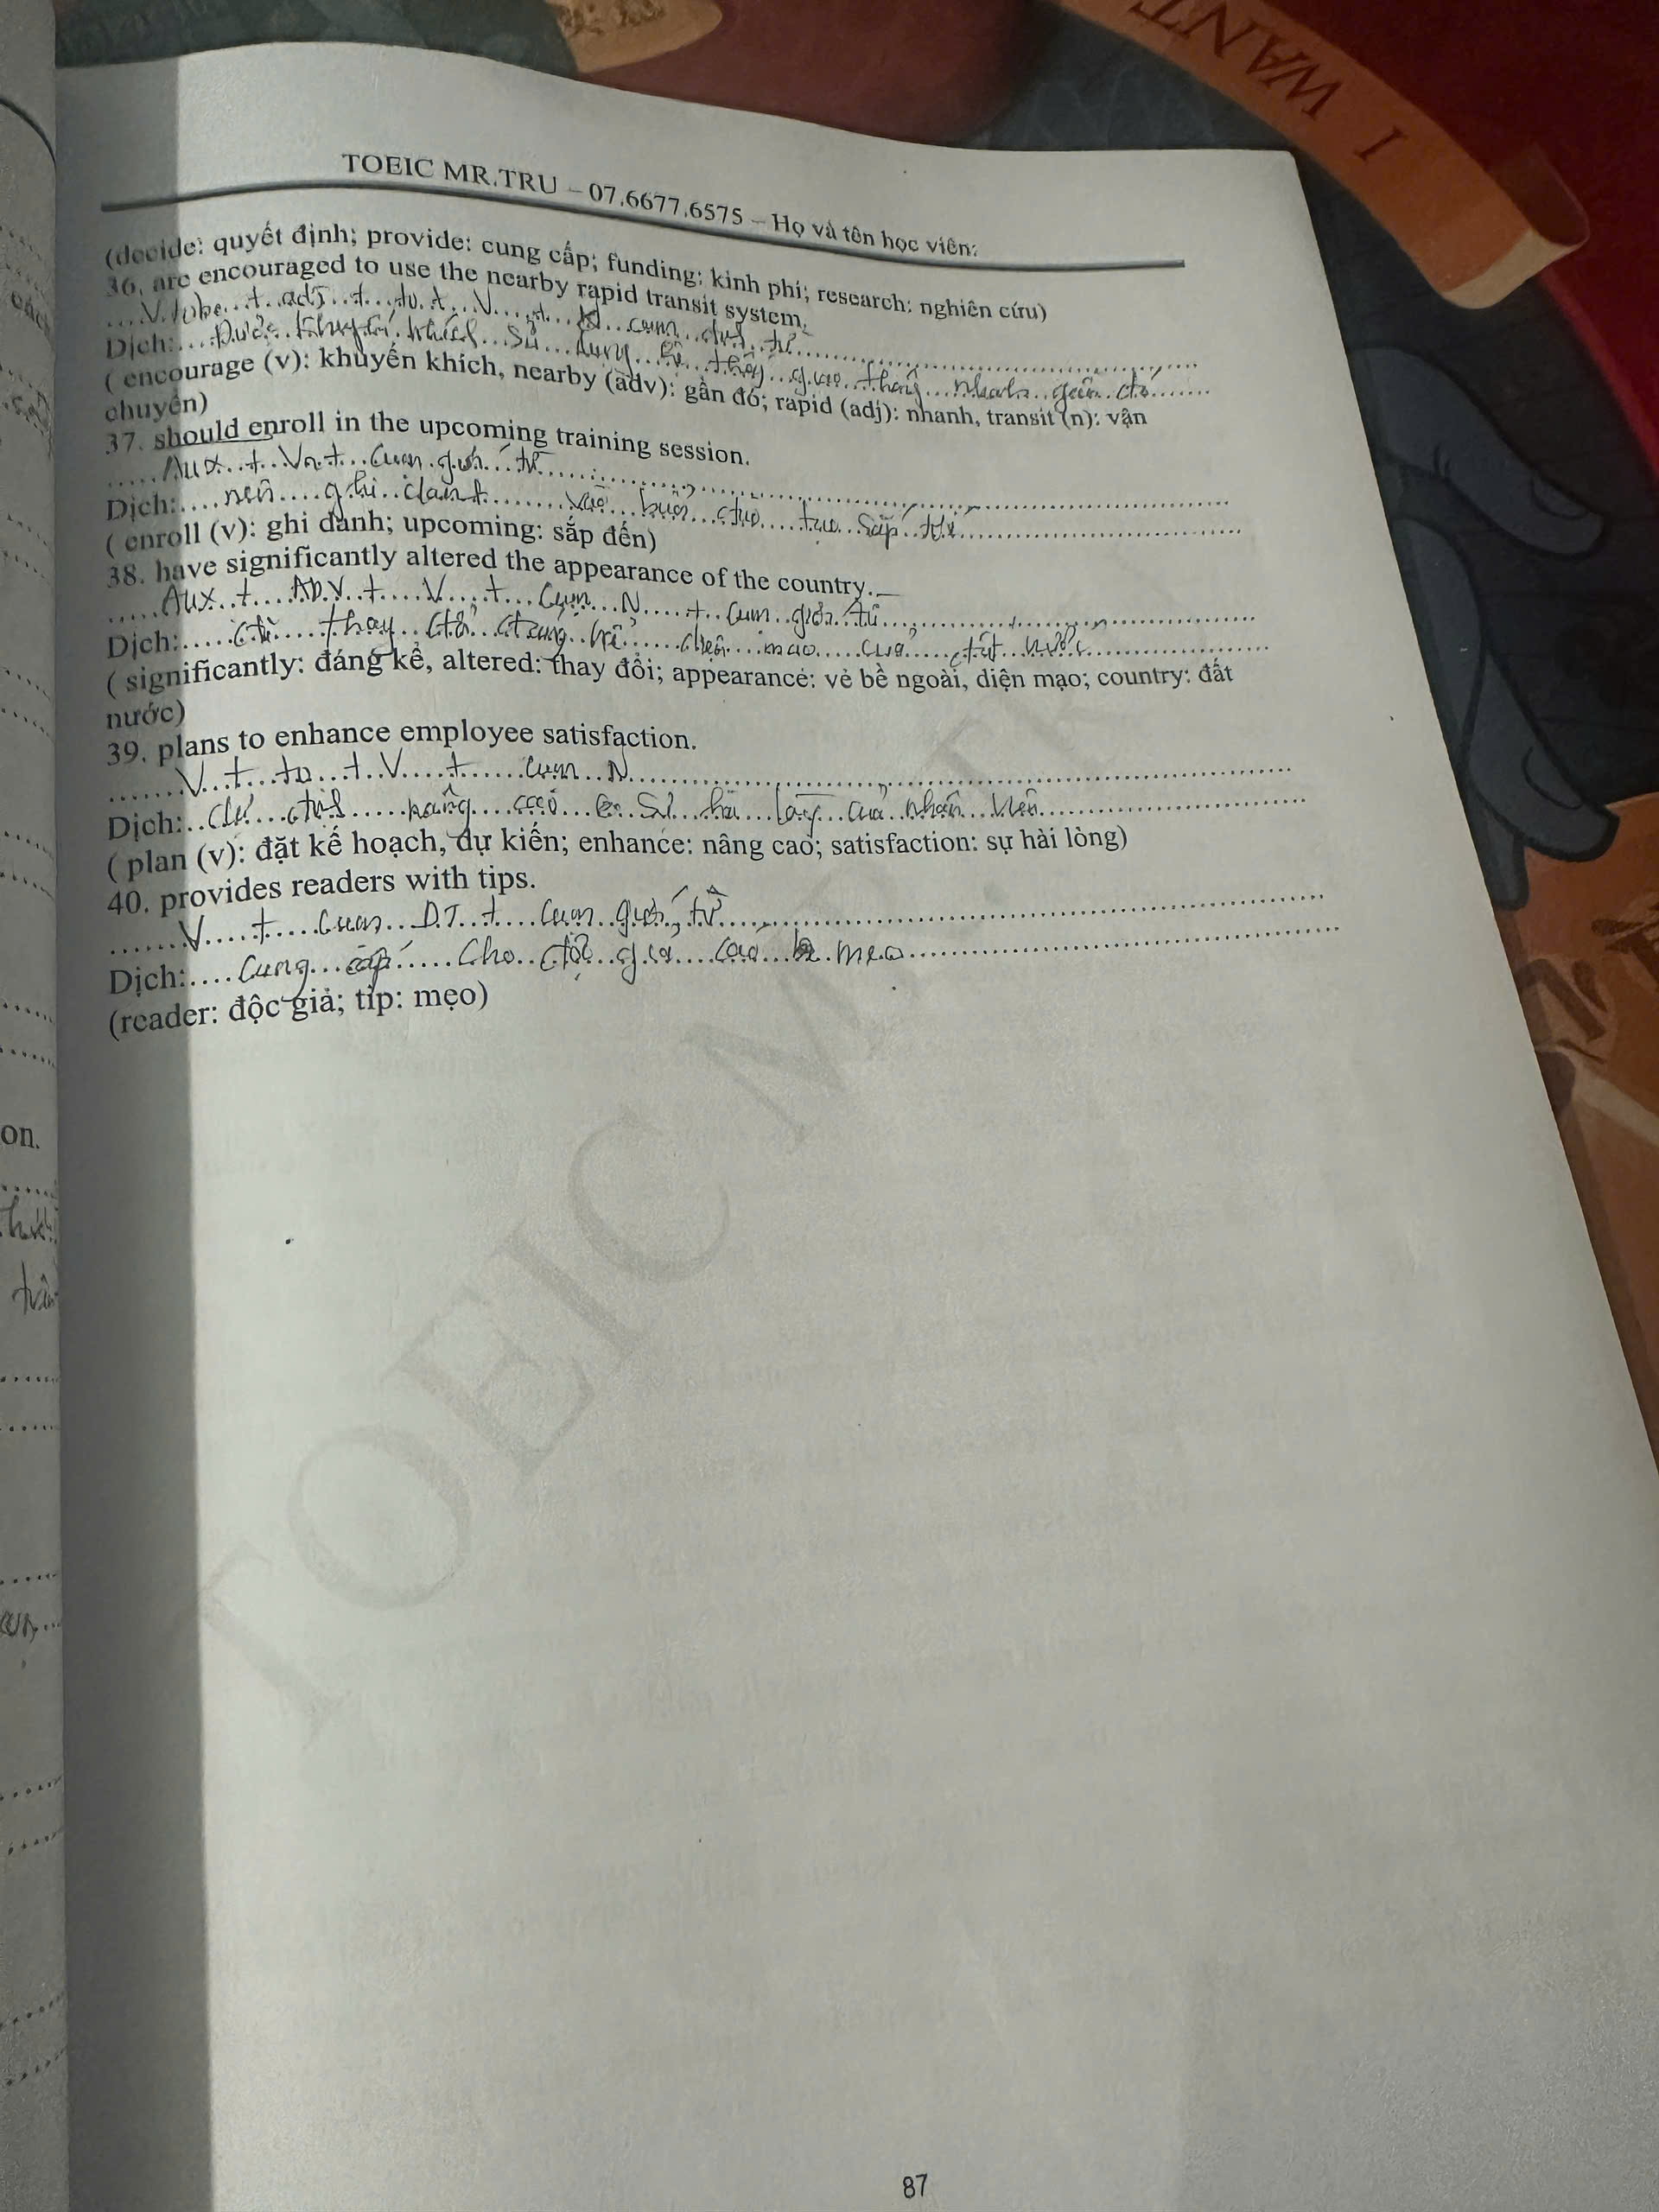 I WANT
TOEIC MR.TRU – 07.6677.6575 – Họ và tên học viên:
(decide: quyết định; provide: cung cấp; funding: kinh phí; research: nghiên cứu)
36. are encouraged to use the nearby rapid transit system.
V tobe + adj + to + V + cụm
Dịch: Được khuyến khích sử dụng hệ thống giao thông nhanh gần đó
( encourage (v): khuyến khích, nearby (adv): gần đó; rapid (adj): nhanh, transit (n): vận
chuyển)
37. should enroll in the upcoming training session.
Aux + V + Cụm giới từ
Dịch: nên ghi danh vào buổi đào tạo sắp tới
( enroll (v): ghi danh; upcoming: sắp đến)
38. have significantly altered the appearance of the country.
Aux + ADV + V + Cụm N + cụm giới từ
Dịch: đã thay đổi đáng kể diện mạo của đất nước
( significantly: đáng kể, altered: thay đổi; appearance: vẻ bề ngoài, diện mạo; country: đất
nước)
39. plans to enhance employee satisfaction.
V + to + V + cụm N
Dịch: dự định nâng cao sự hài lòng của nhân viên
( plan (v): đặt kế hoạch, dự kiến; enhance: nâng cao; satisfaction: sự hài lòng)
40. provides readers with tips.
V + cụm DT + cụm giới từ
Dịch: Cung cấp cho độc giả các mẹo
(reader: độc giả; tip: mẹo)
TOEIC MR.TR
on.
87